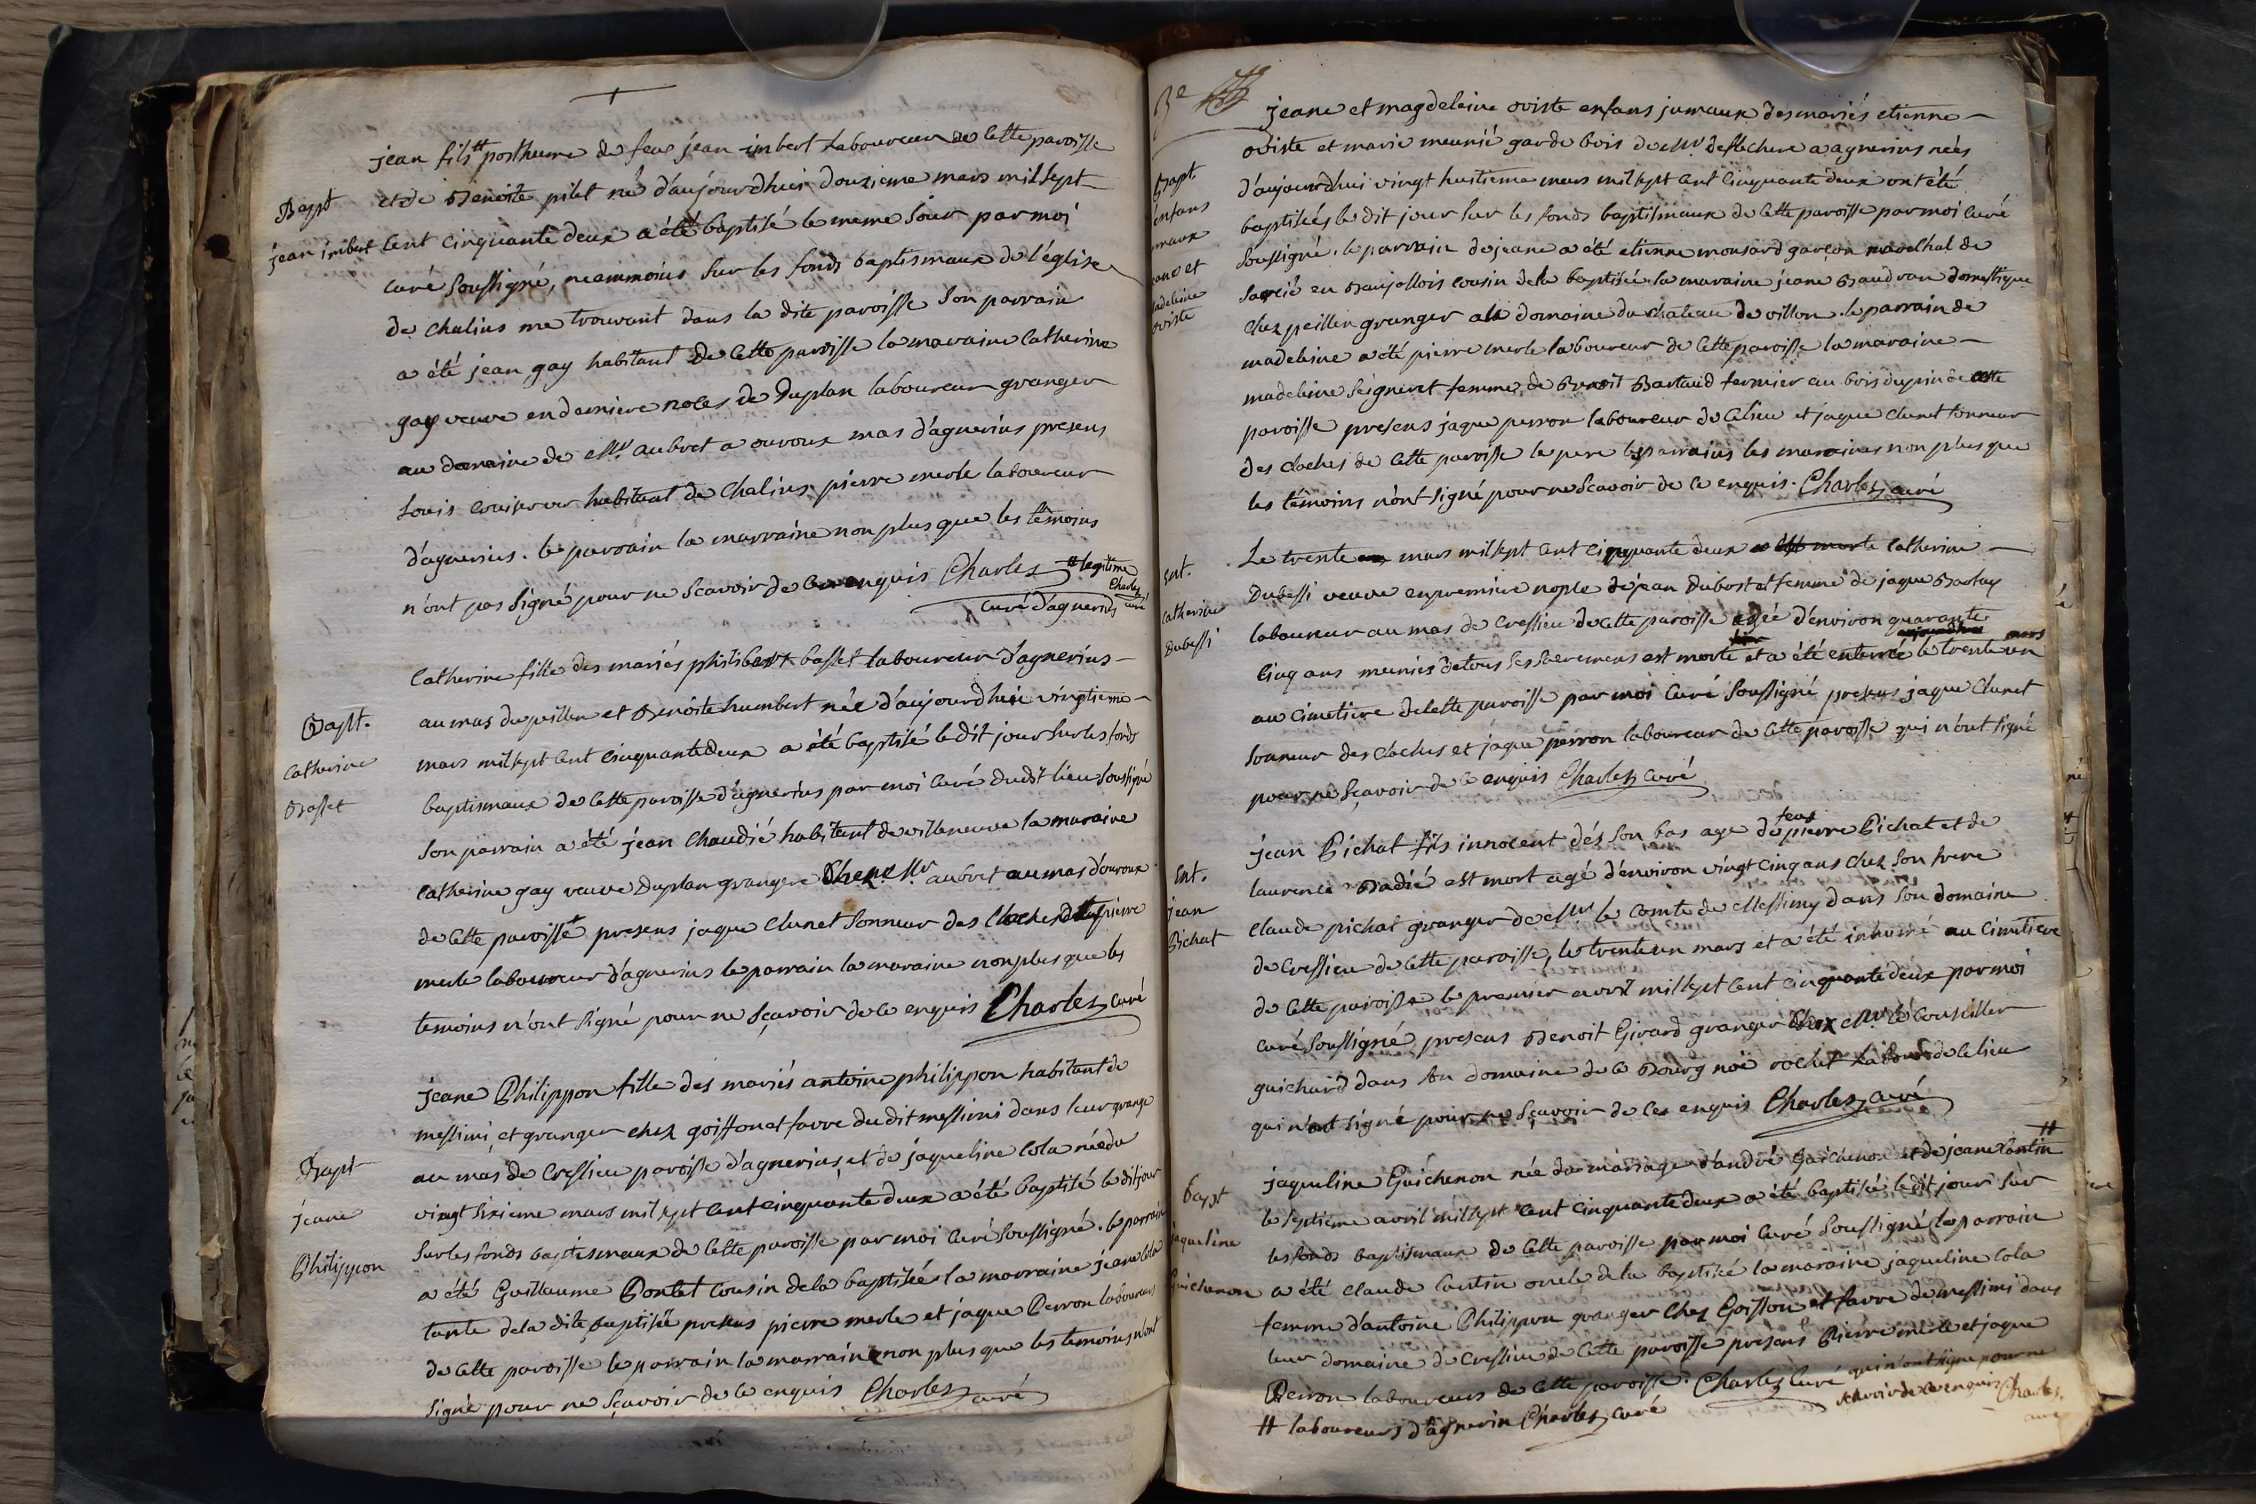 jean fils # posthume de feu jean imbert laboureur de cette paroisse
Bapt
jean imbert
et de Benoite pilat né d'aujourdhui douzieme mars mil sept
cent cinquante deux a été baptisé le meme jour par moi
curé soussigné, neammoins sur les fonds baptismaux de l'église
de chalins me trouvant dans la dite paroisse son parrain
a été jean gay habitant de cette paroisse la maraine catherine
gay veuve en derniere noces de Duplan laboureur granger
au domaine de Mr. aubret a ouroux mas d'agnerins presens
Louis habitant de Chalins pierre merle laboureur
d'agnerins. le parrain la marraine non plus que les témoins
n'ont pas signé pour ne scavoir de ce enquis Charles # legitime
Charles curé
curé d'agnerins
Bapt.
Catherine
Basset
Catherine fille des mariés philibert basset laboureur d'agnerins
au mas du peillen et Benoite humbert née d'aujourdhui vingtieme
mars mil sept cent cinquante deux a été baptisé le dit jour sur les fonds
baptismaux de cette paroisse d'agnerins par moi curé dudit lieu soussigné
son parrain a été jean Chaudié habitant de villeneuve la maraine
catherine gay veuve Duplan grangere chez Mr aubret au mas d'ouroux
de cette paroisse presens jaque Clunet sonneur des cloches et pierre
merle laboureur d'agnerins le parrain la maraine non plus que les
temoins n'ont signé pour ne sçavoir de ce enquis Charles curé
Bapt
jeane
Philippon
jeane Philippon fille des mariés antoine philippon habitant de
messimi et granger chez goiffon et favre du dit messimi dans leur grange
au mas de Cressieu paroisse d'agnerins, et de jaqueline Cola née du
vingt sixieme mars mil sept cent cinquante deux a été baptisé le dit jour
sur les fonds baptismaux de cette paroisse par moi curé soussigné. le parrain
a été Guillaume Pontet cousin de la baptisée la marraine jeane Cola
tante de la dite baptisée presens pierre merle et jaque Perron laboureurs
de cette paroisse le parrain la marraine non plus que les temoins n'ont
signé pour ne sçavoir de ce enquis Charles curé
3e
Bapt.
enfans
umaux
eane et
adeleine
oviste
jeane et magdeleine oviste enfans jumaux des mariés etienne
oviste et marie meunié garde bois de Mr deflechere a agnerins nées
d'aujourdhui vingt huitieme mars mil sept cent cinquante deux ont été
baptisées le dit jour sur les fonds baptismaux de cette paroisse par moi curé
soussigné. le parrain de jeane a été etienne monsard garçon marechal de
en Baujollois cousin de la baptisée la maraine jeane Baudran domestique
chez peillen granger au domaine du chateau de villon. le parrain de
madeleine a été pierre merle laboureur de cette paroisse la maraine
madeleine seigneret femme de Benoit Bartaud fermier au bois dupin de cette
paroisse presens jaque perron laboureur de ce lieu et jaque Clunet sonneur
des cloches de cette paroisse le pere les parrains les maraines non plus que
les témoins n'ont signé pour ne scavoir de ce enquis. Charles curé
Ent.
Catherine
Dubessi
Le trente mars mil sept cent cinquante deux a est morte Catherine
Dubessi veuve en premiere nopce de jean Dubost et femme de jaque Barlay
laboureur au mas de Cressieu de cette paroisse agée d'environ quarante
cinq ans munies de tous ses sacremens est morte hier et a été enterrée aujourdhui le trente un mars
au cimetiere de cette paroisse par moi curé soussigné presens jaque Clunet
sonneur des cloches et jaque perron laboureur de cette paroisse qui n'ont signé
pour ne sçavoir de ce enquis Charles curé
Ent.
jean
Pichat
jean Pichat fils innocent dés son bas age de feu pierre Pichat et de
laurence Badié est mort agé d'environ vingt cinq ans chez son frere
claude pichat granger de Mr le Comte de Messimy dans son domaine
de Cressieu de cette paroisse, le trente un mars et a été inhumé au cimetiere
de cette paroisse le premier avril mil sept cent cinquante deux par moi
curé soussigné presens Benoit Girard granger chez Mr le Conseiller
guichard dans son domaine de ce Bourg noé rochet de ce lieu
qui n'ont signé pour ne sçavoir de ces enquis Charles curé
bapt
jaqueline
Guichenon
jaqueline Guichenon née du mariage d'andré Guichenon et de jeane Cantin #
le septieme avril mil sept cent cinquante deux a été baptisée le dit jour sur
les fonds baptismaux de cette paroisse par moi curé soussigné le parrain
a été claude Cantin oncle de la baptisée la maraine jaqueline Cola
femme d'antoine Philippon granger chez Goiffon et favre de messimi dans
leur domaine de Cressieu de cette paroisse presens Pierre merle et jaque
Perron laboureurs de cette paroisse. Charles curé qui n'ont signé pour ne
scavoir de ce enquis Charles curé
# laboureurs d'agnerin Charles curé